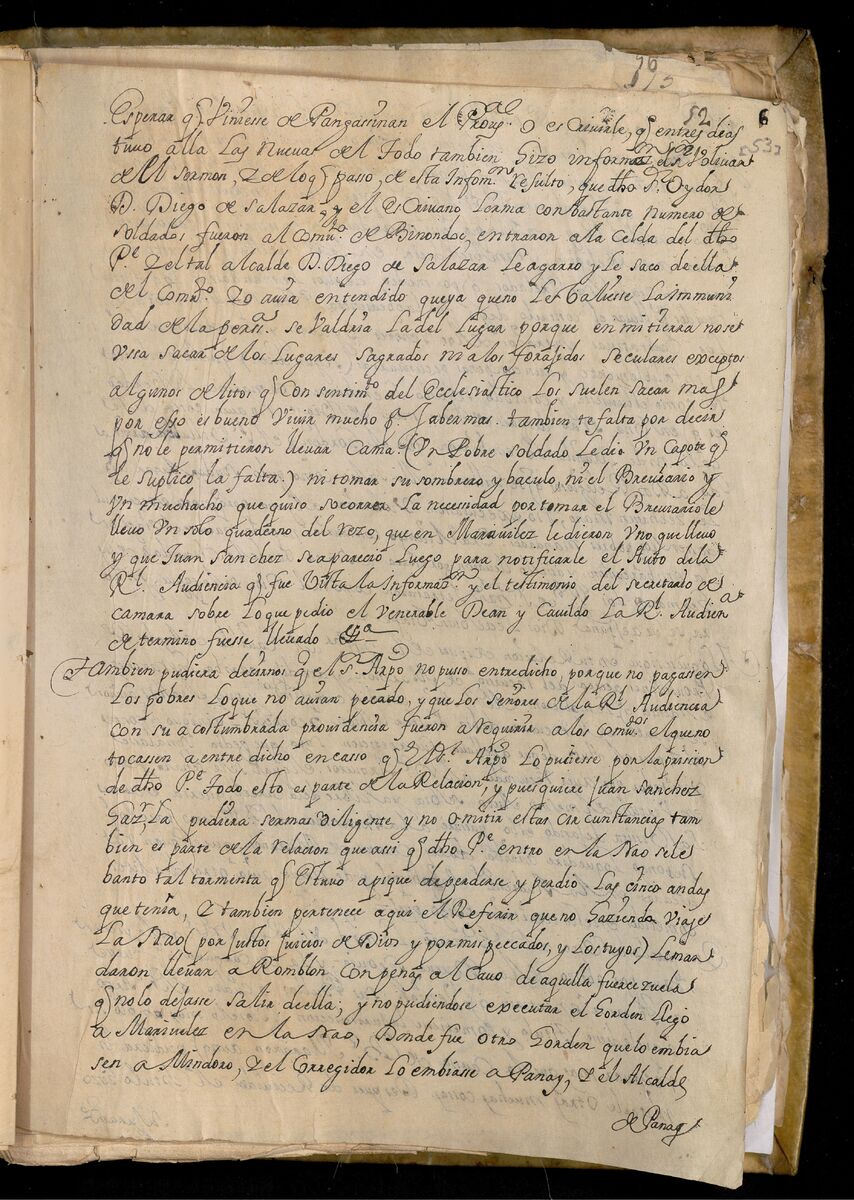 96
175
52
6
[53]
Esperar q̃ Viniesse de Pangassinan el Prou.al o escriuirle, q̃ entres dias
tuuo alla Las nueuas de todo tambien hizo informaz.on el Sr. Voliuar
de el sermon, y de loq̃ passo, de esta Infom.on resulto, que dho Sr. Oydor
D. Diego de Salazar, y el escriuano Lerma con bastante numero de
soldados fueron al Comu.to de Binondoc, entraron a la Celda del dho
P.e y el tal alcalde D. Diego de Salazar Le agarro y Le saco de ella
del Comu.to yo auia entendido que ya que no Le Valiesse La inmuni
dad de la pers.a se Valdria La del Lugar porque en mi tierra nose
Vssa sacar de los Lugares sagrados ni a los forajidos seculares exceptos
algunos delitos q̃ Con sentim.to del ecclesiastico Los suelen sacar mas
por esso es bueno Viuir mucho p.a saber mas. tambien te falta por decir
q̃ no le permitieron lleuar Cama (Vn Pobre soldado Le dio Vn Capote q̃
le suplico la falta.) ni tomar su sombrero y baculo, ni el Breuiario y
Vn muchacho que quiso socorrer La necesidad por tomar el Breuiario le
lleuo Vn solo quaderno del rezo, que en Mariuelez le dieron Vno que lleuo
y que Juan Sanchez se aparecio Luego para notificarle el Auto dela
R.l Audiencia q̃ fue Vista la Informaz.on y el testimonio del secretario de
camara sobre Lo que pedio el Venerable Dean y Cauildo La R.l Audien.a
determino fuesse lleuado
Tambien pudiera decirnos q̃ el Sr. Arpo no pusso entredicho, porque no pagassen
Los pobres Lo que no auian pecado, y que Los Señores de la R.l Audiencia
con su acostumbrada prouidencia fueron a requirir a los comu.tos el que no
tocassen a entre dicho en casso q̃ el Sr. Arpo Lo pusiesse por la prission
de dho P.e todo esto es parte de la Relacion, y pues quiere Juan Sanchez
Gaz.la pudiera ser mas diligente y no omitir estas circunstancias tam
bien es parte de la relacion que assi q̃ dho P.e entro en la Nao se le
banto tal tormenta q̃ estuuo a pique de perderse y perdio Las cinco anclas
que tenia, y tambien pertenece aqui el Referir que no haziendo Viaje
La Nao (por Justos Juicios de Dios y por mis peccados, y Los tuyos) Le man
daron lleuar a Romblon con penas al Cauo de aquella fuercezuela
q̃ nolo dejasse salir de ella; y no pudiendose executar el horden llego
a Mariuelez en la Nao, Donde fue otro horden que lo embia
sen a Mindoro, y el Corregidor Lo embiasse a Panay, y el Alcalde
de Panay